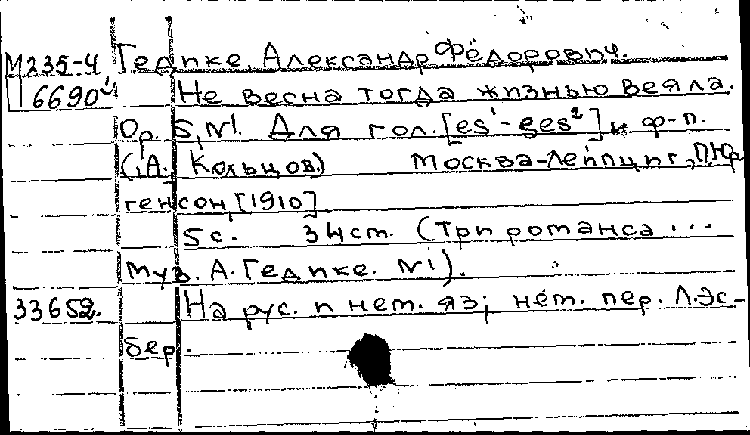 М235-4 Гедике, Александр Фёдорович.
6690 Не весна тогда жизнью веяла.
Op. 5, №1. Для гол. [es¹-ges²] и ф-п.
(А. Кольцов.) Москва-Лейпциг, П.Юр
генсон, [1910]
5 с. 34 cm. (Три романса ...
муз. А. Гедике. №1).
33652. На рус. и нем. яз; нем. пер. Л. Эс-
бер.